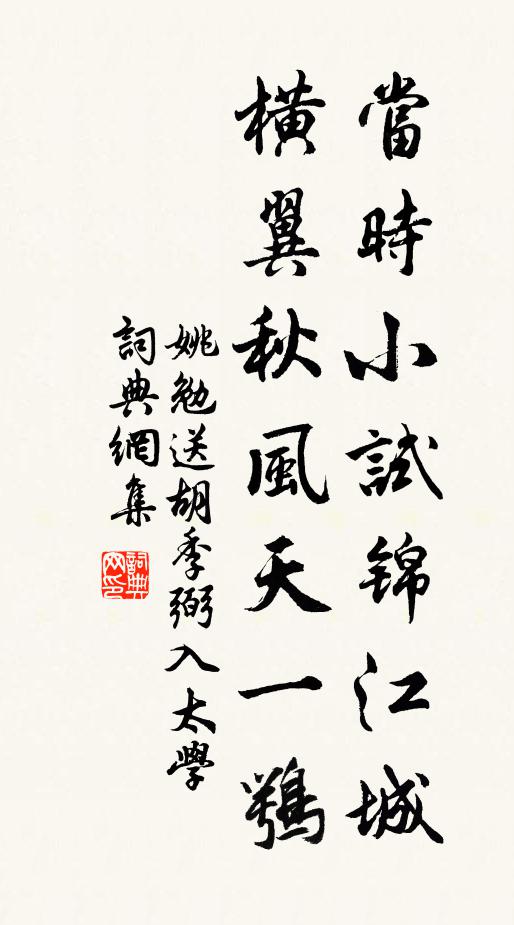 當時小試錦江城
橫翼秋風天一鶚
姚勉送胡季弼入太學
詞典網集
詞典
网印